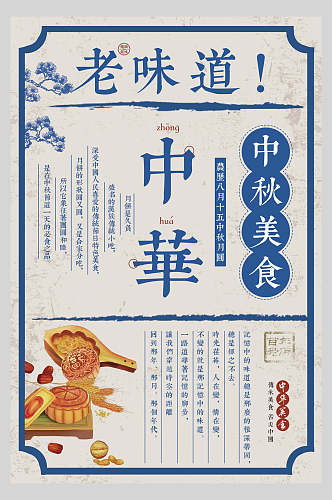 老味道！
zhōng
中
huá
華
中秋美食
農歷八月十五中秋月圓
月餅是久負
盛名的漢族傳統小吃，
深受中國人民喜愛的傳統節日特色美食，
月餅的形狀圓又圓，又是合家分吃，
所以它象征著團圓和睦，
是在中秋節這一天的必食之品
記憶中的味道總是那麼的根深蒂固，
總是揮之不去。
時光荏苒，人在變，情在變，
不變的就是那記憶中的味道。
一路追尋著記憶的腳步，
讓我們穿越時空的距離
回到那年，那月，那個年代。
百年老店
中華美食
傳承美食 舌尖中國